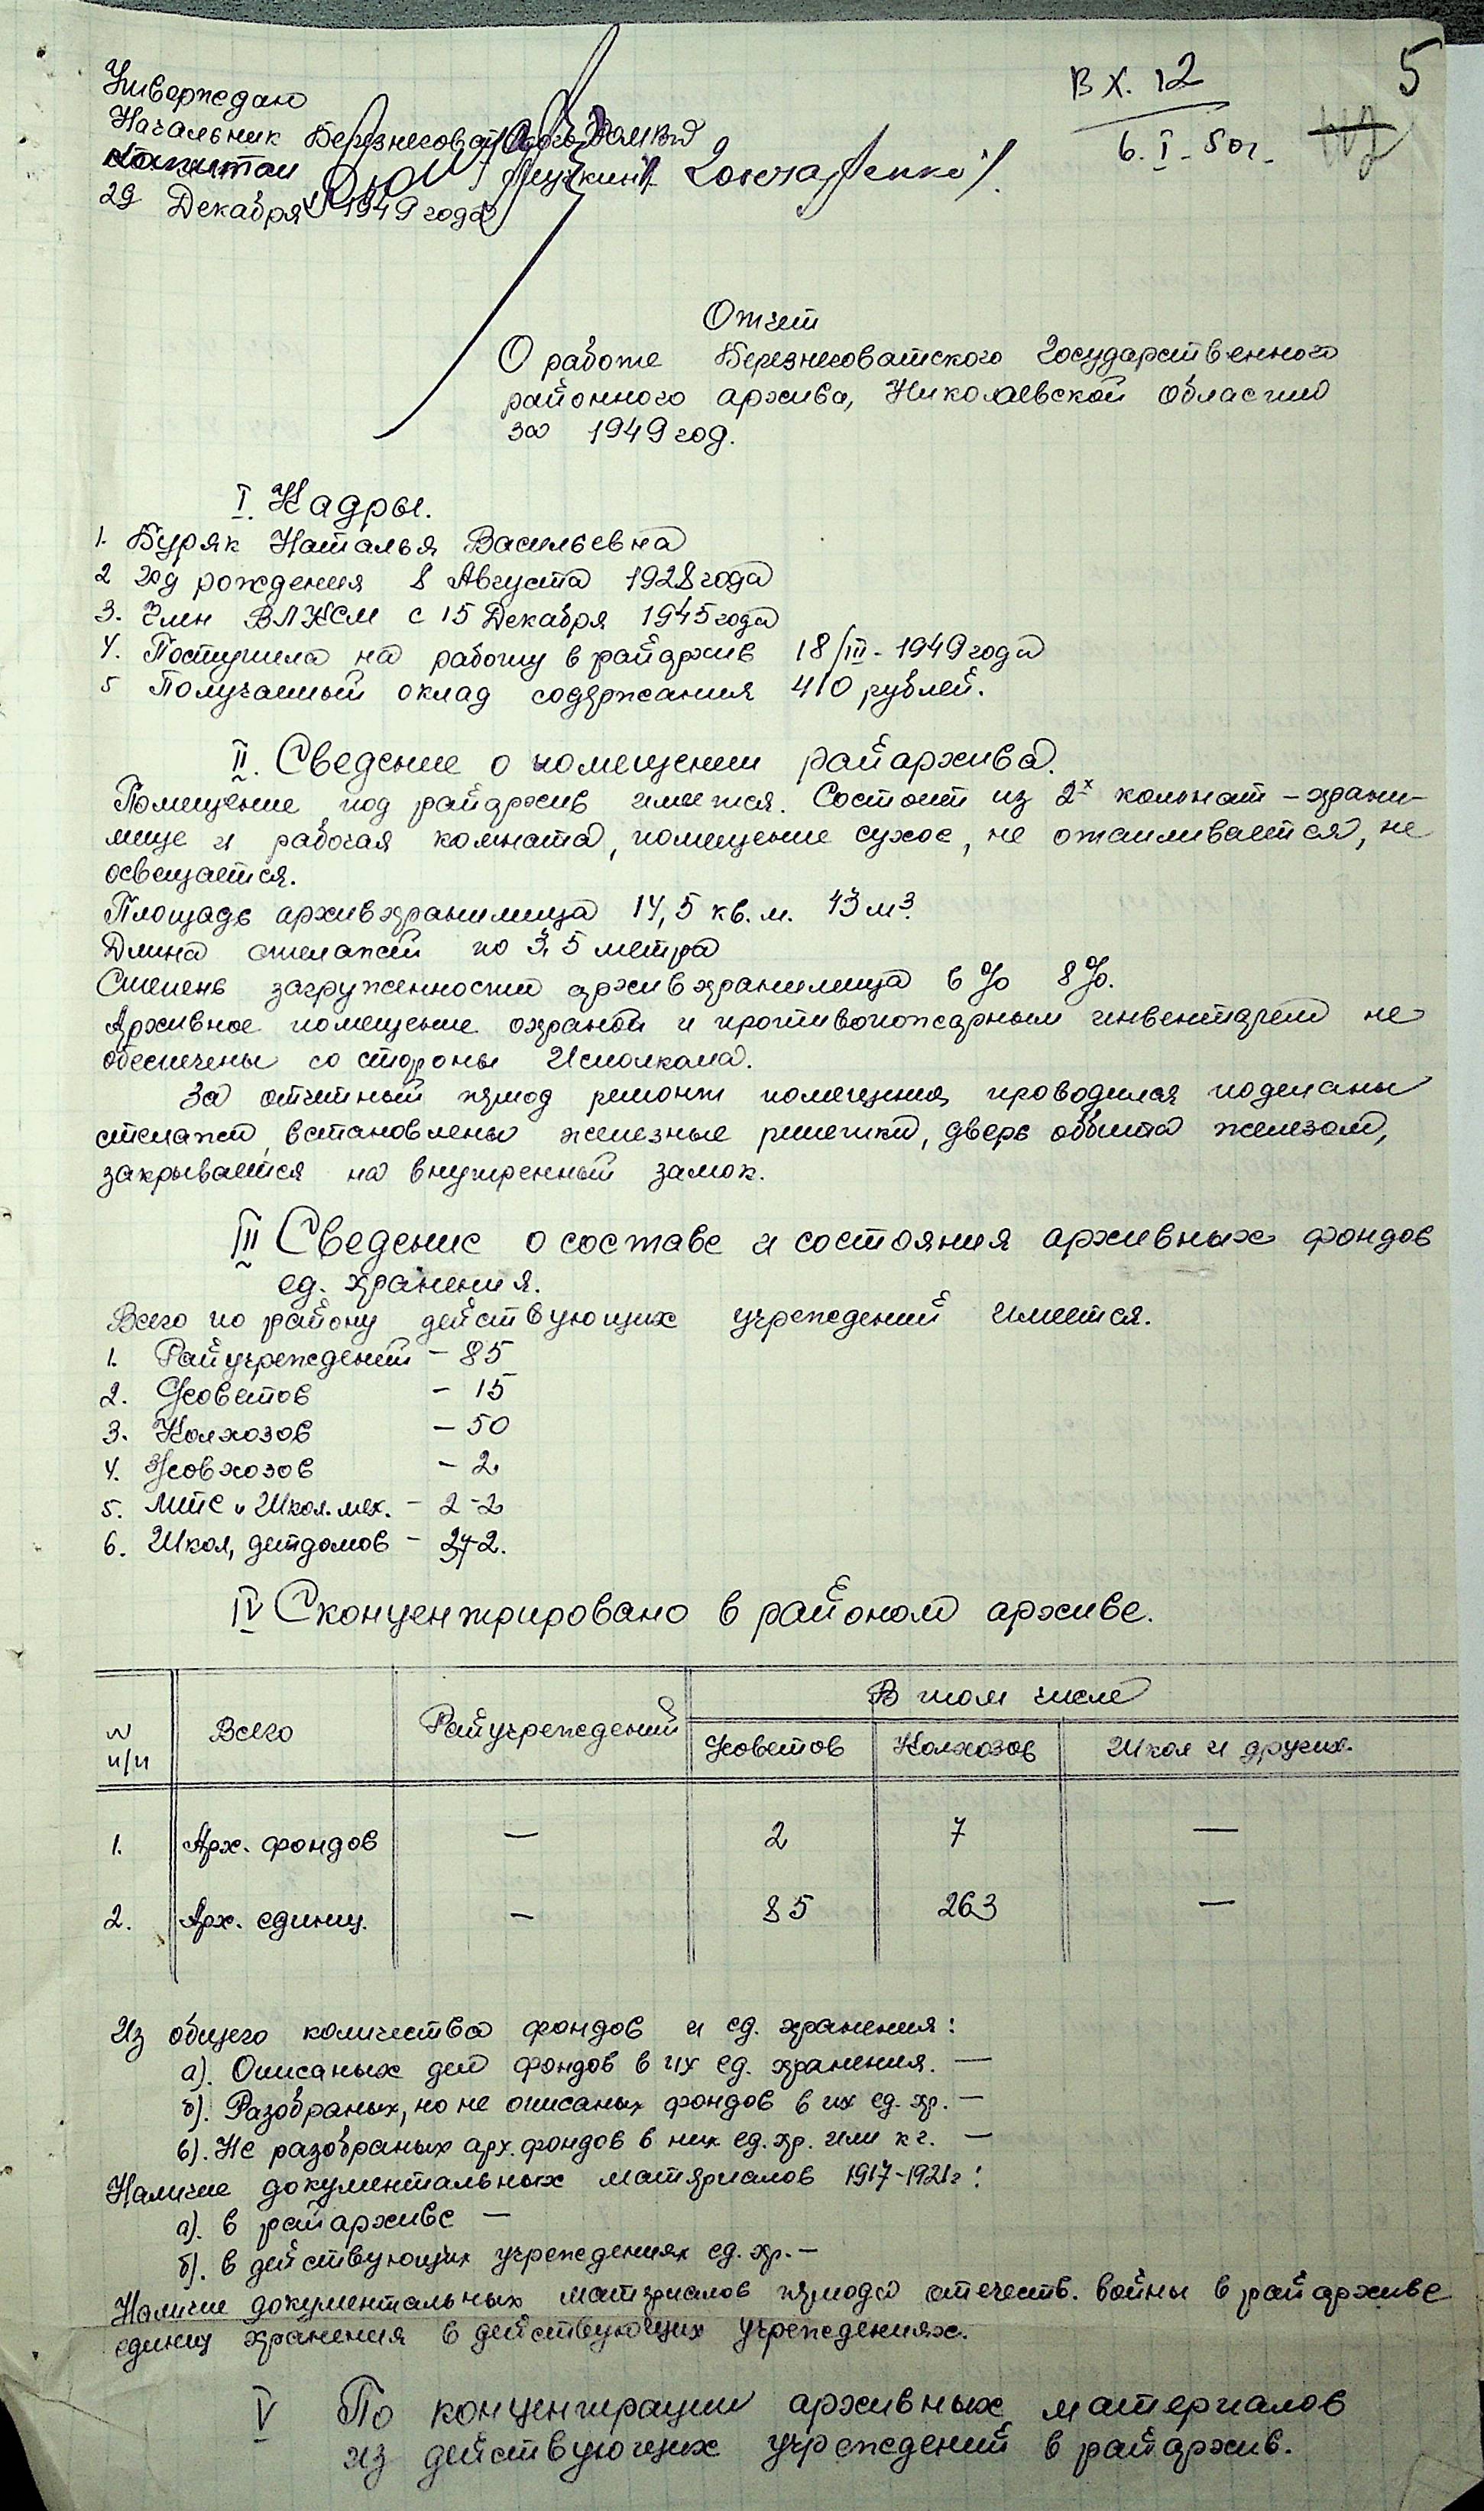 Утверждаю
Начальник Березнеговатского РО МВД
капитан /Лучкин/. Гончаренко /.
29 Декабря 1949 года
Вх. 12
6.I-50г.
5
Отчет
О работе Березнеговатского Государственного
районного архива, Николаевской области
за 1949 год.
I. Кадры.
1. Буряк Наталья Васильевна
2 Год рождения 8 Августа 1928 года
3. Член ВЛКСМ с 15 Декабря 1945 года
4. Поступила на работу в райархив 18/III-1949 года
5 Получаемый оклад содержания 410 рублей.
II. Сведение о помещении райархива.
Помещение под райархив имеется. Состоит из 2х комнат – храни-
лище и рабочая комната, помещение сухое, не отапливается, не
освещается.
Площадь архивхранилища 14,5 кв.м. 43 м3.
Длина стелажей по 3,5 метра
Степень загруженности архивхранилища 6% 8%.
Архивное помещение охраной и противопожарным инвентарем не
обеспечены со стороны Исполкома.
За отчетный период ремонт помещения проводился поделаны
стелажи, встановлены железные решетки, дверь оббита железом,
закрывается на внутренный замок.
III Сведение о составе и состояния архивных фондов
ед. хранения.
Всего по району действующих учреждений имеется.
1. Райучреждений – 85
2. С/советов – 15
3. Колхозов – 50
4. Совхозов – 2
5. МТС и Школ. мех. – 2-2
6. Школ, детдомов – 34-2.
IV Сконцентрировано в районом архиве.
N п/п Всего Райучреждений В том числе
С/советов Колхозов Школ и других.
1. Арх. фондов — 2 7 —
2. Арх. единиц. — 85 263 —
Из общего количества фондов и ед. хранения:
а). Описаных дел фондов в их ед. хранения. —
б). Разобраных, но не описаных фондов в их ед. хр. —
в). Не разобраных арх. фондов в них ед. хр. или кг. —
Наличие документальных материалов 1917-1921г:
а). в райархиве —
б). в действующих учреждениях ед. хр. —
Наличие документальных материалов периода отечеств. войны в райархиве
единиц хранения в действующих учреждениях.
V По концентрации архивных материалов
из действующих учреждений в райархив.